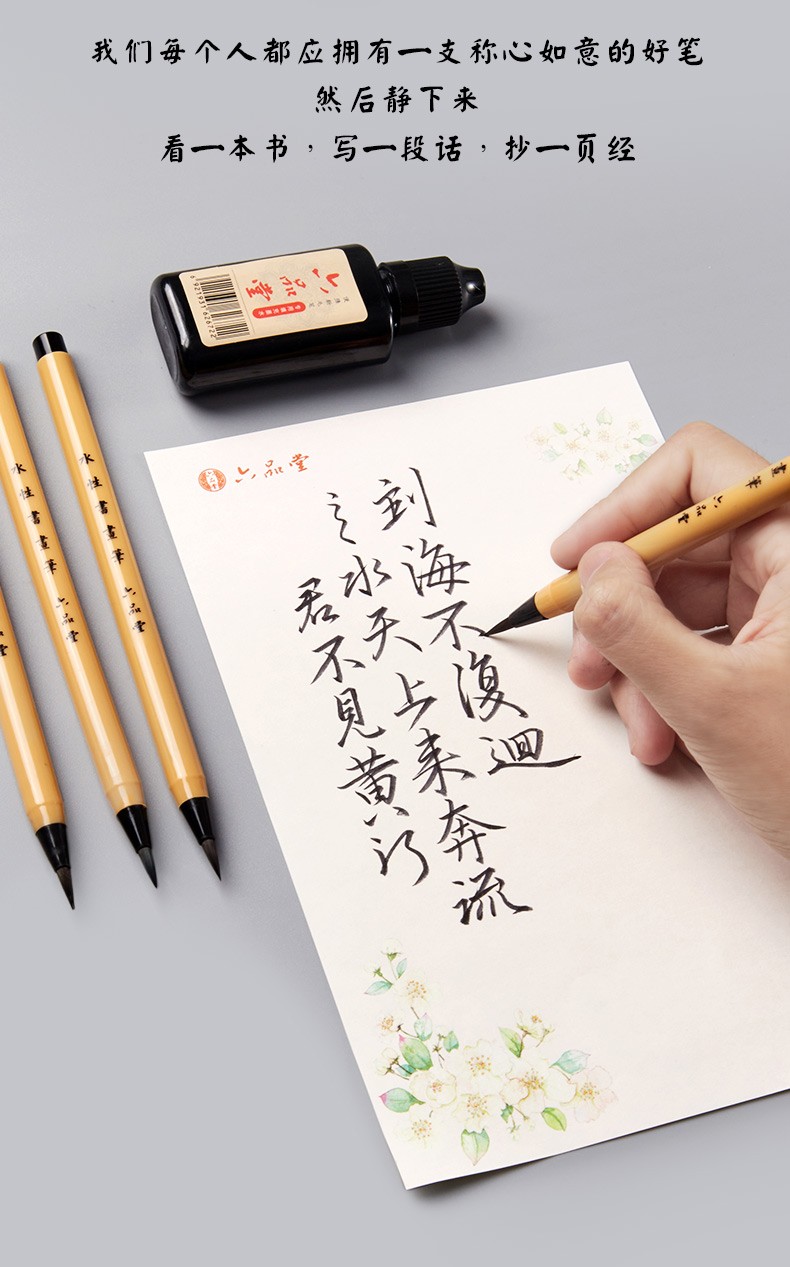 我们每个人都应拥有一支称心如意的好笔
然后静下来
看一本书，写一段话，抄一页经
六品堂
6921931626722
六品堂
君不見黄河
之水天上来奔流
到海不復迴
水性書畫筆 六品堂
水性書畫筆 六品堂
堂
畫筆 六品堂